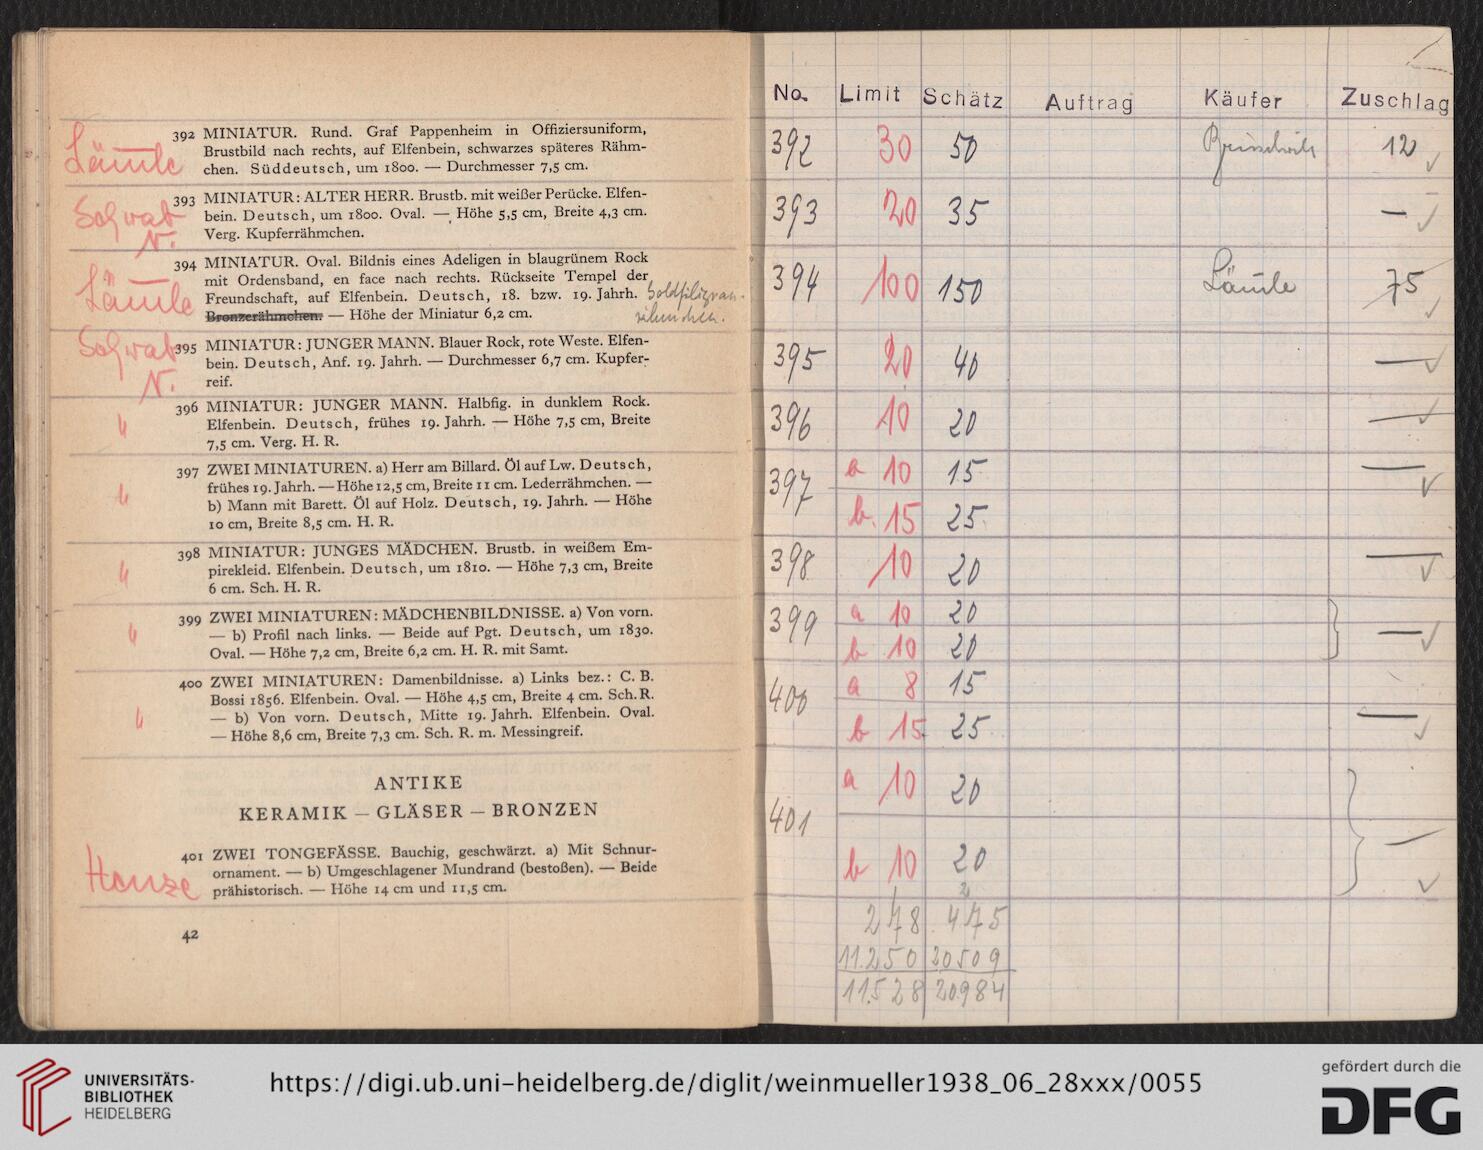 392 MINIATUR. Rund. Graf Pappenheim in Offiziersuniform,
Brustbild nach rechts, auf Elfenbein, schwarzes späteres Rähm-
chen. Süddeutsch, um 1800. — Durchmesser 7,5 cm.
Läule
393 MINIATUR: ALTER HERR. Brustb. mit weißer Perücke. Elfen-
bein. Deutsch, um 1800. Oval. — Höhe 5,5 cm, Breite 4,3 cm.
Verg. Kupferrähmchen.
Schwab
N.
394 MINIATUR. Oval. Bildnis eines Adeligen in blaugrünem Rock
mit Ordensband, en face nach rechts. Rückseite Tempel der
Freundschaft, auf Elfenbein. Deutsch, 18. bzw. 19. Jahrh. Goldfiligran-
Bronzerähmchen. — Höhe der Miniatur 6,2 cm. rähmchen.
Läule
395 MINIATUR: JUNGER MANN. Blauer Rock, rote Weste. Elfen-
bein. Deutsch, Anf. 19. Jahrh. — Durchmesser 6,7 cm. Kupfer-
reif.
Schwab
N.
396 MINIATUR: JUNGER MANN. Halbfig. in dunklem Rock.
Elfenbein. Deutsch, frühes 19. Jahrh. — Höhe 7,5 cm, Breite
7,5 cm. Verg. H. R.
"
397 ZWEI MINIATUREN. a) Herr am Billard. Öl auf Lw. Deutsch,
frühes 19. Jahrh. — Höhe 12,5 cm, Breite 11 cm. Lederrähmchen. —
b) Mann mit Barett. Öl auf Holz. Deutsch, 19. Jahrh. — Höhe
10 cm, Breite 8,5 cm. H. R.
"
398 MINIATUR: JUNGES MÄDCHEN. Brustb. in weißem Em-
pirekleid. Elfenbein. Deutsch, um 1810. — Höhe 7,3 cm, Breite
6 cm. Sch. H. R.
"
399 ZWEI MINIATUREN: MÄDCHENBILDNISSE. a) Von vorn.
— b) Profil nach links. — Beide auf Pgt. Deutsch, um 1830.
Oval. — Höhe 7,2 cm, Breite 6,2 cm. H. R. mit Samt.
"
400 ZWEI MINIATUREN: Damenbildnisse. a) Links bez.: C. B.
Bossi 1856. Elfenbein. Oval. — Höhe 4,5 cm, Breite 4 cm. Sch. R.
— b) Von vorn. Deutsch, Mitte 19. Jahrh. Elfenbein. Oval.
— Höhe 8,6 cm, Breite 7,3 cm. Sch. R. m. Messingreif.
"
ANTIKE
KERAMIK — GLÄSER — BRONZEN
401 ZWEI TONGEFÄSSE. Bauchig, geschwärzt. a) Mit Schnur-
ornament. — b) Umgeschlagener Mundrand (bestoßen). — Beide
prähistorisch. — Höhe 14 cm und 11,5 cm.
Henze
42
No. Limit Schätz Auftrag Käufer Zuschlag
392 30 50 120
393 20 35 —
394 100 150 Läule 75
395 20 40 —
396 10 20 —
397 a 10 15 —
b. 15 25
398 10 20 —
399 a 10 20 —
b 10 20
400 a 8 15
b 15 25 —
401 a 10 20
b 10 20 —
278 475
11.250 20509
11.528 20.984
UNIVERSITÄTS-
BIBLIOTHEK
HEIDELBERG
https://digi.ub.uni-heidelberg.de/diglit/weinmueller1938_06_28xxx/0055
gefördert durch die
DFG